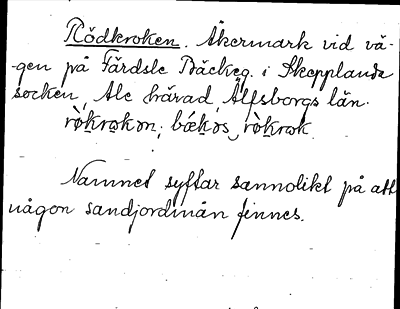 Rödkroken. Åkermark vid vä-
-gen på Färdsle Bäckeg. i Skepplanda
socken, Ale härad, Älfsborgs län.
rò̀krokən, bǽkəs, rò̀krok
Namnet syftar sannolikt på att
någon sandjordmån finnes.